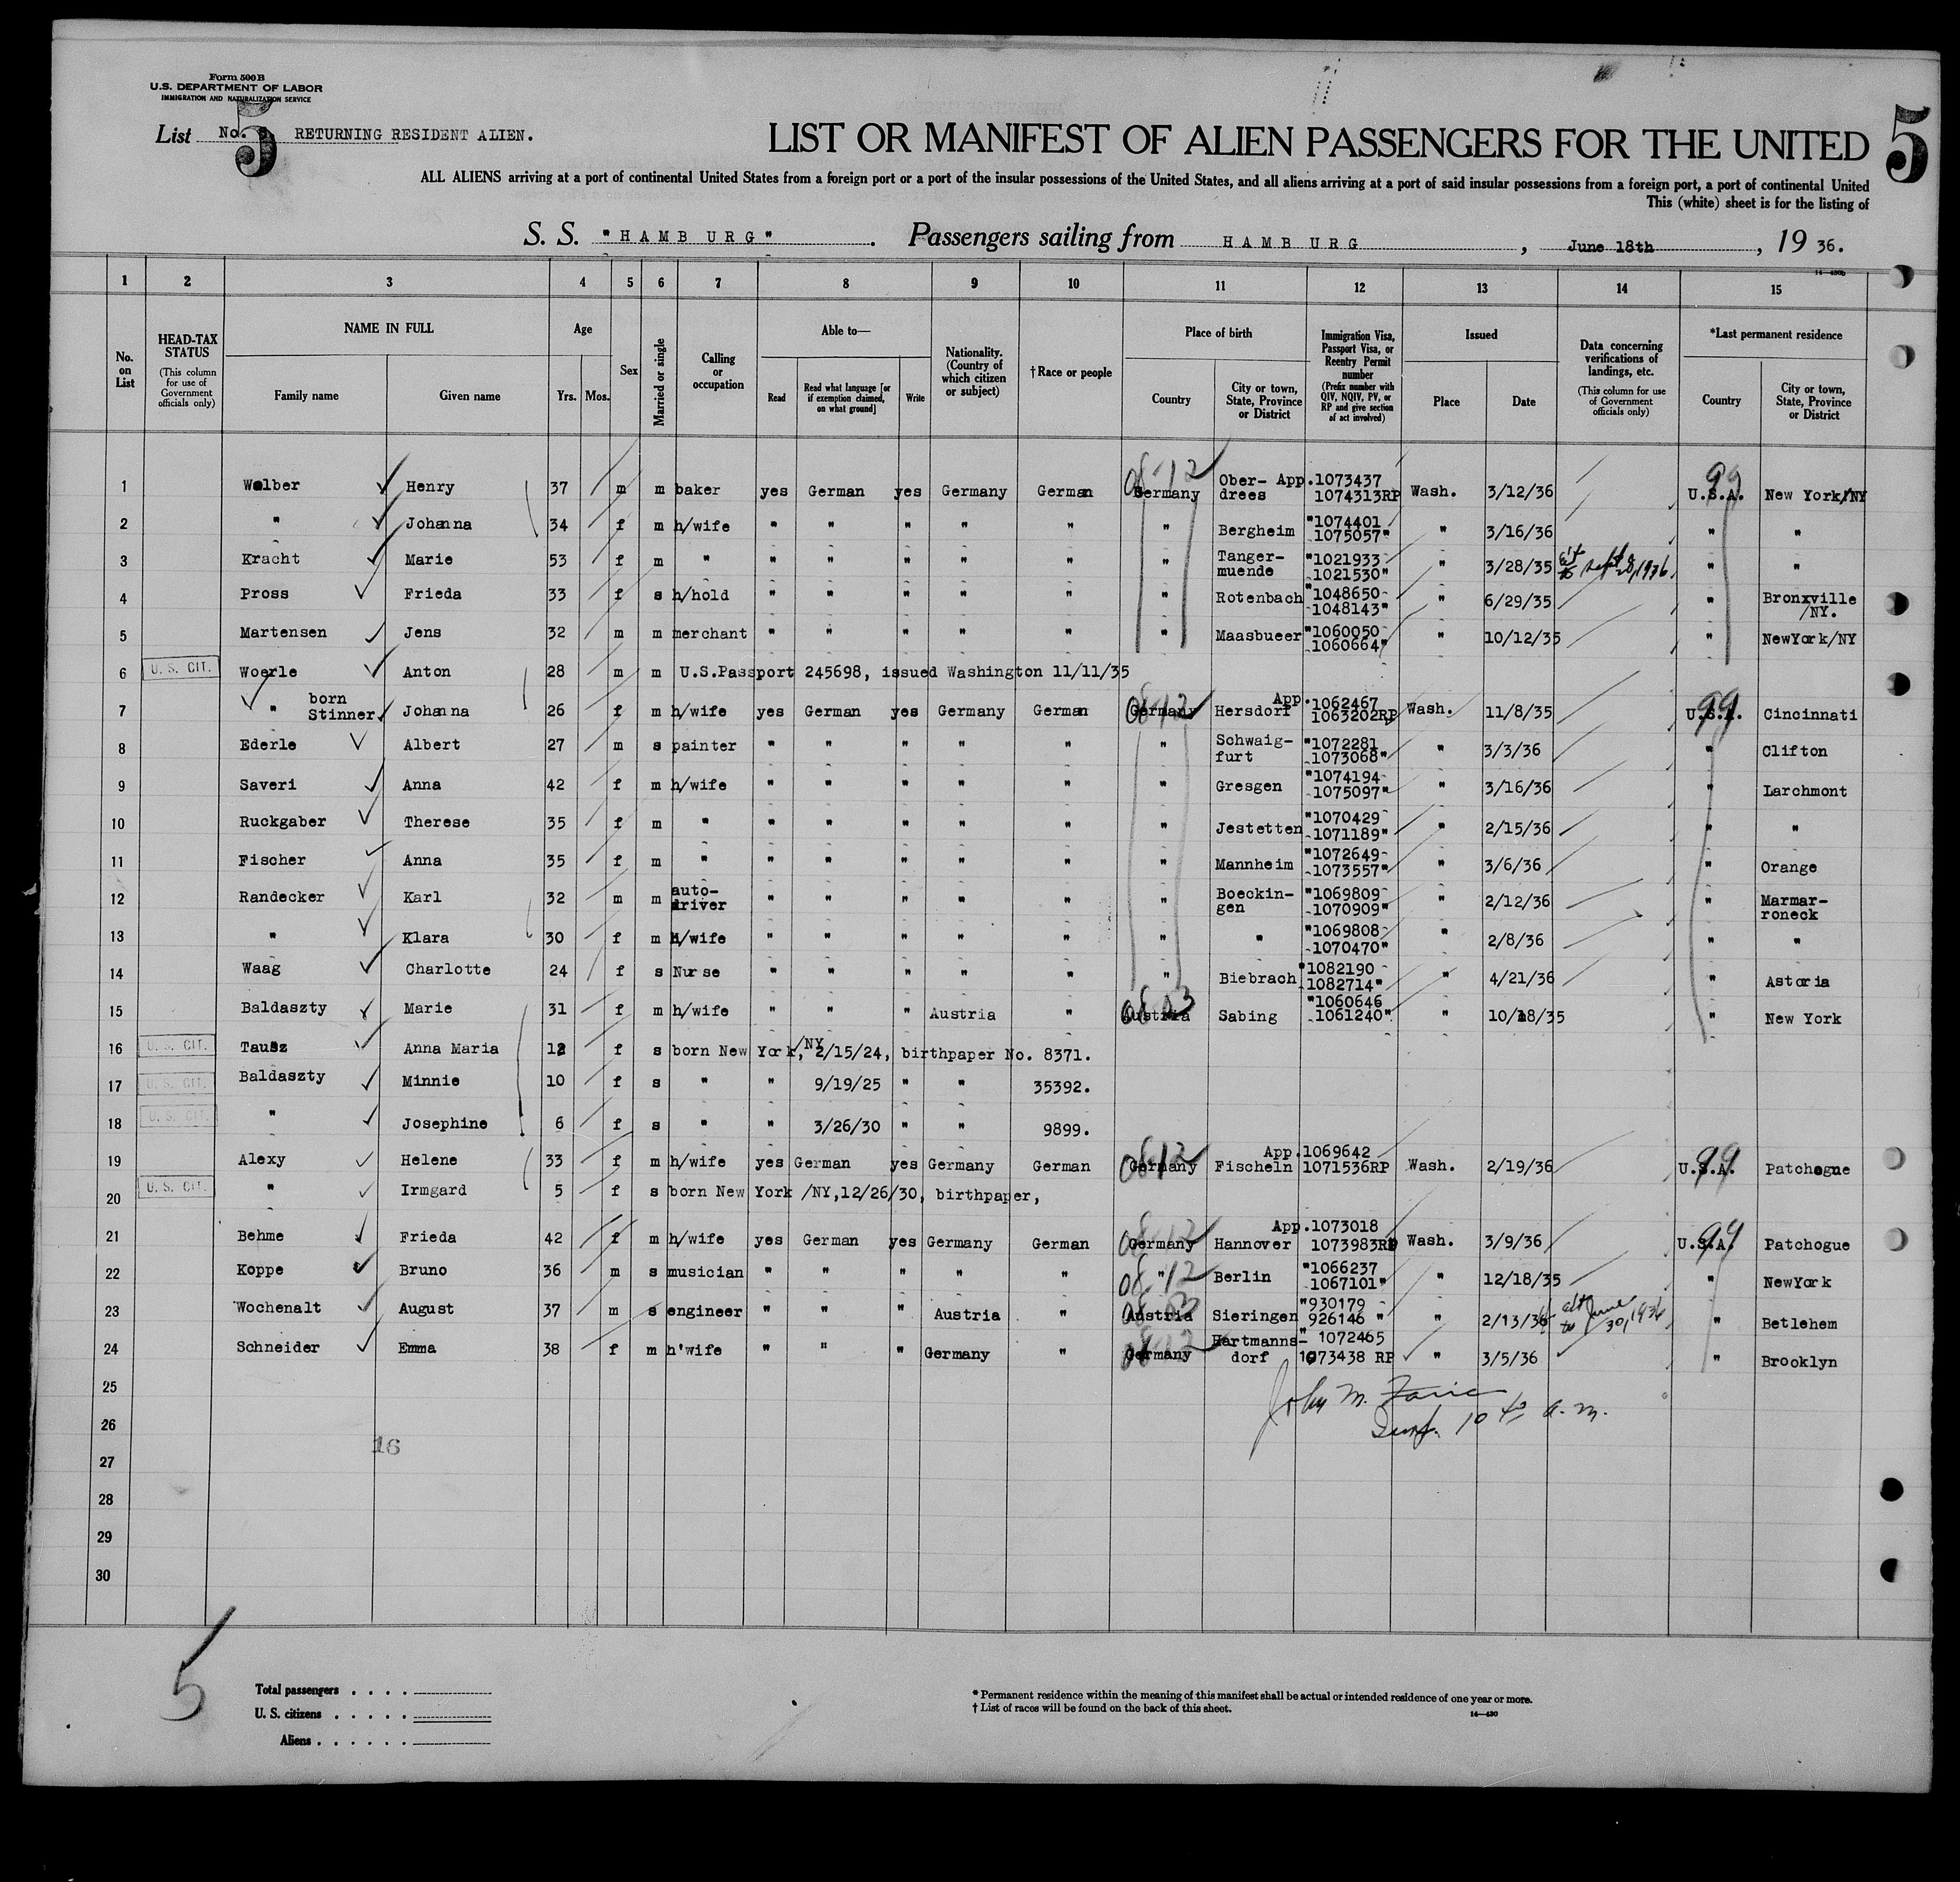 Form 500 B
U.S. DEPARTMENT OF LABOR
IMMIGRATION AND NATURALIZATION SERVICE
List No. 5 RETURNING RESIDENT ALIEN.
LIST OR MANIFEST OF ALIEN PASSENGERS FOR THE UNITED
5
ALL ALIENS arriving at a port of continental United States from a foreign port or a port of the insular possessions of the United States, and all aliens arriving at a port of said insular possessions from a foreign port, a port of continental United
This (white) sheet is for the listing of
S. S. "HAMBURG". Passengers sailing from HAMBURG, June 18th, 19 36.
1 2 3 4 5 6 7 8 9 10 11 12 13 14 15
No. on List
HEAD-TAX STATUS (This column for use of Government officials only)
NAME IN FULL
Family name Given name
Age Yrs. Mos.
Sex
Married or single
Calling or occupation
Able to—
Read Read what language [or if exemption claimed, on what ground] Write
Nationality. (Country of which citizen or subject)
†Race or people
Place of birth
Country City or town, State, Province or District
Immigration Visa, Passport Visa, or Reentry Permit number (Prefix number with QIV, NQIV, PV, or RP and give section of act involved)
Issued
Place Date
Data concerning verifications of landings, etc. (This column for use of Government officials only)
*Last permanent residence
Country City or town, State, Province or District
1 Walber Henry 37 m m baker yes German yes Germany German 08-12 Germany Ober-drees App.1073437 1074313RP Wash. 3/12/36 99 U.S.A. New York/NY
2 " Johanna 34 f m h/wife " " " " " " Bergheim "1074401 1075057" " 3/16/36 " "
3 Kracht Marie 53 f m " " " " " " " Tanger-muende "1021933 1021530" " 3/28/35 Sept 28, 1936 " "
4 Pross Frieda 33 f s h/hold " " " " " " Rotenbach "1048650 1048143" " 6/29/35 " Bronxville /NY.
5 Martensen Jens 32 m m merchant " " " " " " Maasbueer "1060050 1060664" " 10/12/35 " NewYork/NY
6 U. S. CIT. Woerle Anton 28 m m U.S.Passport 245698, issued Washington 11/11/35
7 " born Stinner Johanna 26 f m h/wife yes German yes Germany German 08-12 Germany Hersdorf App.1062467 1063202RP Wash. 11/8/35 99 U.S.A. Cincinnati
8 Ederle Albert 27 m s painter " " " " " " Schwaig-furt "1072281 1073068" " 3/3/36 " Clifton
9 Saveri Anna 42 f m h/wife " " " " " " Gresgen "1074194 1075097" " 3/16/36 " Larchmont
10 Ruckgaber Therese 35 f m " " " " " " " Jestetten "1070429 1071189" " 2/15/36 " "
11 Fischer Anna 35 f m " " " " " " " Mannheim "1072649 1073557" " 3/6/36 " Orange
12 Randecker Karl 32 m m auto-driver " " " " " " Boeckin-gen "1069809 1070909" " 2/12/36 " Marmar-roneck
13 " Klara 30 f m h/wife " " " " " " " "1069808 1070470" " 2/8/36 " "
14 Waag Charlotte 24 f s Nurse " " " " " " Biebrach "1082190 1082714" " 4/21/36 " Astoria
15 Baldaszty Marie 31 f m h/wife " " " Austria " Austria Sabing "1060646 1061240" " 10/18/35 " New York
16 U. S. CIT. Tausz Anna Maria 12 f s born New York, /NY 2/15/24, birthpaper No. 8371.
17 U. S. CIT. Baldaszty Minnie 10 f s " " 9/19/25 " " 35392.
18 U. S. CIT. " Josephine 6 f s " " 3/26/30 " " 9899.
19 Alexy Helene 33 f m h/wife yes German yes Germany German 08-12 Germany Fischeln App.1069642 1071536RP Wash. 2/19/36 99 U.S.A. Patchogue
20 U. S. CIT. " Irmgard 5 f s born New York /NY,12/26/30, birthpaper,
21 Behme Frieda 42 f m h/wife yes German yes Germany German 08-12 Germany Hannover App.1073018 1073983RP Wash. 3/9/36 99 U.S.A. Patchogue
22 Koppe Bruno 36 m s musician " " " " " 08-12 " Berlin "1066237 1067101" " 12/18/35 " NewYork
23 Wochenalt August 37 m s engineer " " " Austria " Austria Sieringen "930179 926146 " " 2/13/36 June 30, 1936 " Betlehem
24 Schneider Emma 38 f m h'wife " " " Germany " Germany Hartmanns-dorf " 1072465 1073438 RP " 3/5/36 " Brooklyn
25
John M.
26
10 a.m.
16
27
28
29
30
5
Total passengers . . . .
U. S. citizens . . . . .
Aliens . . . . . .
* Permanent residence within the meaning of this manifest shall be actual or intended residence of one year or more.
† List of races will be found on the back of this sheet.
14—430